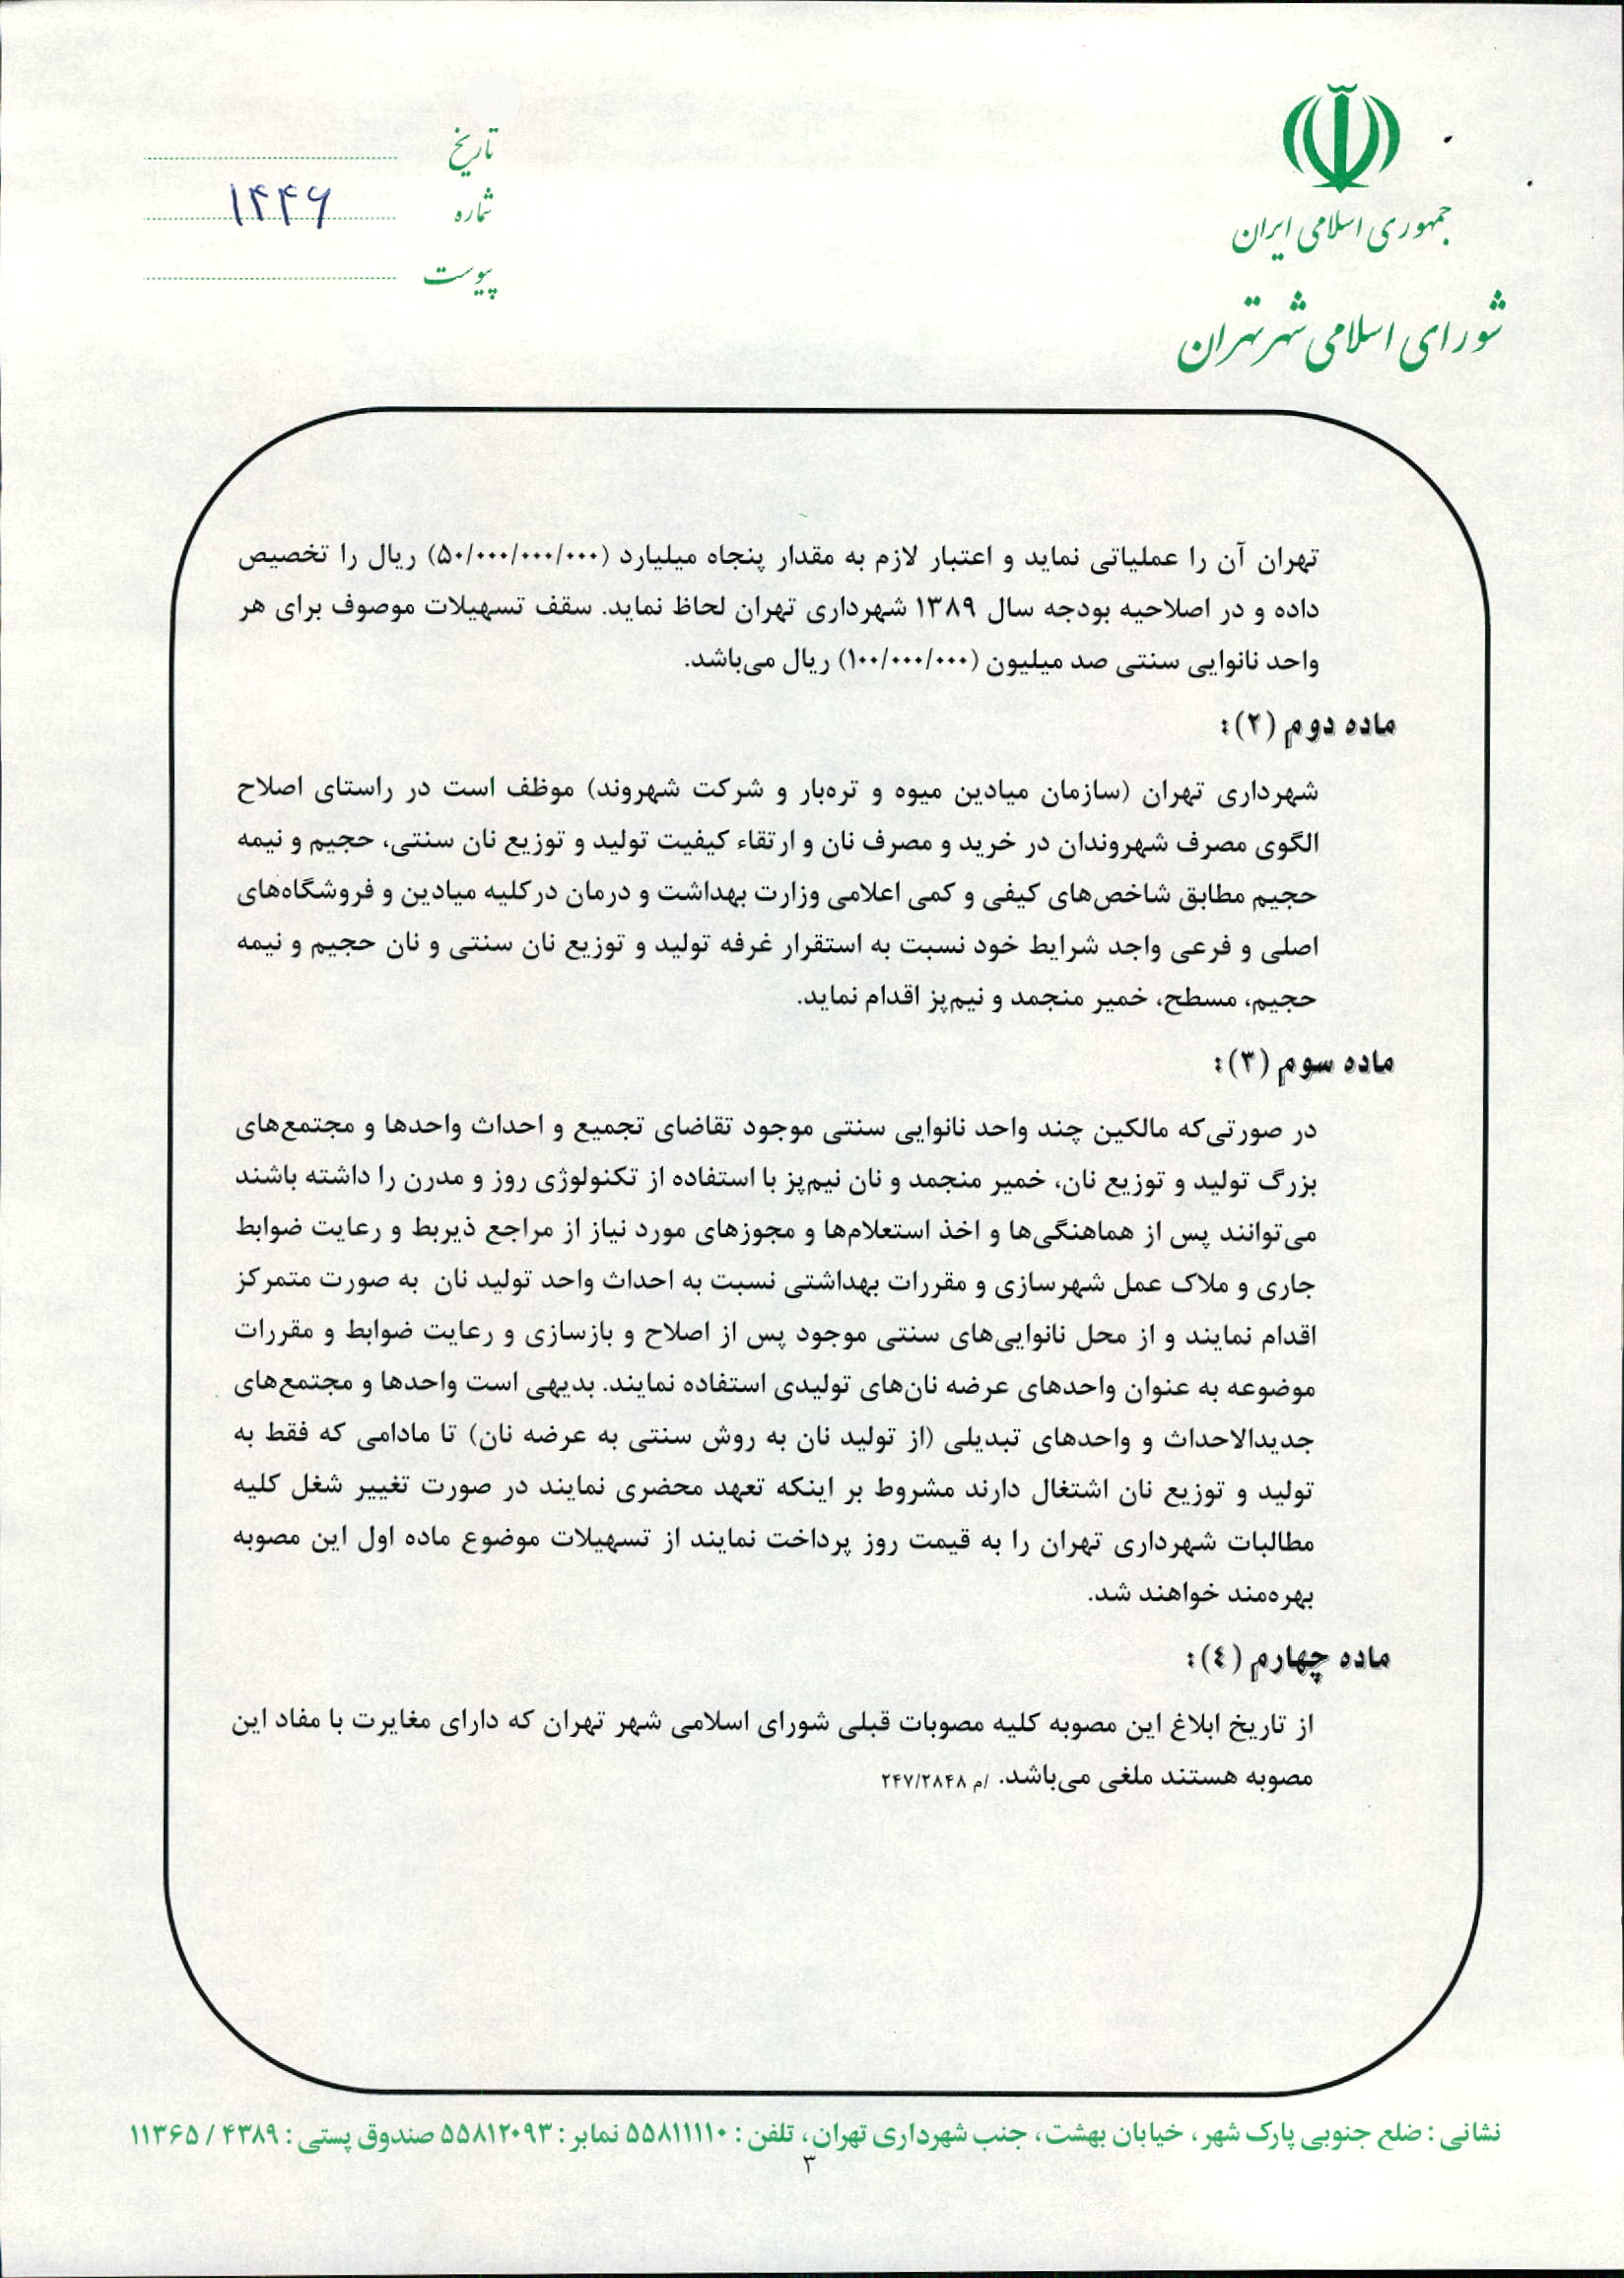 جمهوری اسلامی ایران
شورای اسلامی شهر تهران
تاریخ
شماره ۱۴۴۶
پیوست
تهران آن را عملیاتی نماید و اعتبار لازم به مقدار پنجاه میلیارد (۵۰/۰۰۰/۰۰۰/۰۰۰) ریال را تخصیص
داده و در اصلاحیه بودجه سال ۱۳۸۹ شهرداری تهران لحاظ نماید. سقف تسهیلات موصوف برای هر
واحد نانوایی سنتی صد میلیون (۱۰۰/۰۰۰/۰۰۰) ریال می‌باشد.
ماده دوم (۲):
شهرداری تهران (سازمان میادین میوه و تره‌بار و شرکت شهروند) موظف است در راستای اصلاح
الگوی مصرف شهروندان در خرید و مصرف نان و ارتقاء کیفیت تولید و توزیع نان سنتی، حجیم و نیمه
حجیم مطابق شاخص‌های کیفی و کمی اعلامی وزارت بهداشت و درمان درکلیه میادین و فروشگاه‌های
اصلی و فرعی واجد شرایط خود نسبت به استقرار غرفه تولید و توزیع نان سنتی و نان حجیم و نیمه
حجیم، مسطح، خمیر منجمد و نیم‌پز اقدام نماید.
ماده سوم (۳):
در صورتی‌که مالکین چند واحد نانوایی سنتی موجود تقاضای تجمیع و احداث واحدها و مجتمع‌های
بزرگ تولید و توزیع نان، خمیر منجمد و نان نیم‌پز با استفاده از تکنولوژی روز و مدرن را داشته باشند
می‌توانند پس از هماهنگی‌ها و اخذ استعلام‌ها و مجوزهای مورد نیاز از مراجع ذیربط و رعایت ضوابط
جاری و ملاک عمل شهرسازی و مقررات بهداشتی نسبت به احداث واحد تولید نان به صورت متمرکز
اقدام نمایند و از محل نانوایی‌های سنتی موجود پس از اصلاح و بازسازی و رعایت ضوابط و مقررات
موضوعه به عنوان واحدهای عرضه نان‌های تولیدی استفاده نمایند. بدیهی است واحدها و مجتمع‌های
جدیدالاحداث و واحدهای تبدیلی (از تولید نان به روش سنتی به عرضه نان) تا مادامی که فقط به
تولید و توزیع نان اشتغال دارند مشروط بر اینکه تعهد محضری نمایند در صورت تغییر شغل کلیه
مطالبات شهرداری تهران را به قیمت روز پرداخت نمایند از تسهیلات موضوع ماده اول این مصوبه
بهره‌مند خواهند شد.
ماده چهارم (٤):
از تاریخ ابلاغ این مصوبه کلیه مصوبات قبلی شورای اسلامی شهر تهران که دارای مغایرت با مفاد این
مصوبه هستند ملغی می‌باشد. /م ۲۴۷/۲۸۴۸
نشانی : ضلع جنوبی پارک شهر، خیابان بهشت، جنب شهرداری تهران، تلفن : ۵۵۸۱۱۱۱۰ نمابر : ۵۵۸۱۲۰۹۳ صندوق پستی : ۴۳۸۹ / ۱۱۳۶۵
۳